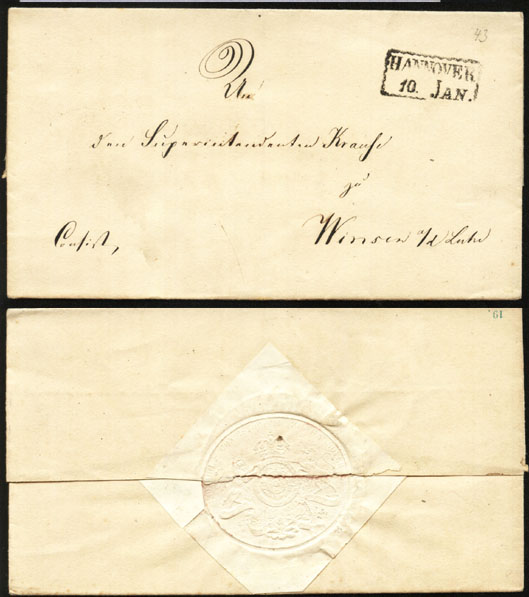 43
HANNOVER
10. JAN.
An
den Superintendenten Krause
zu
Consist,
Winsen a/d Luhe
19.